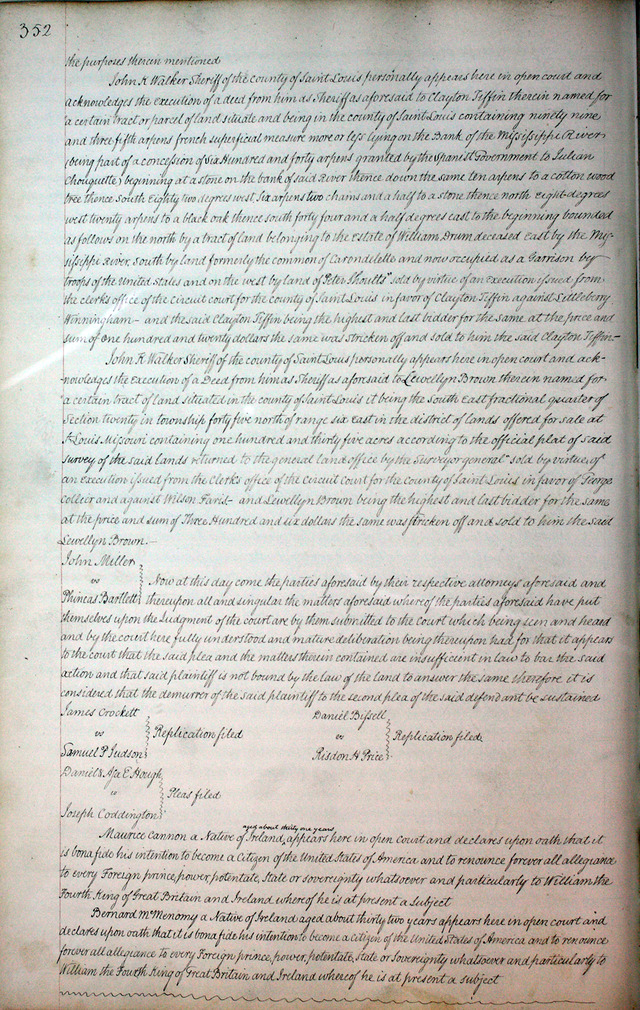 352
the purposes therein mentioned
John K Walker Sheriff of the county of Saint Louis personally appears here in open court and
acknowledges the execution of a deed from him as Sheriff as aforesaid to Clayton Tiffin therein named for
a certain tract or parcel of land situate and being in the county of Saint Louis containing ninety nine
and three fifth arpens french superficial measure more or less lying on the Bank of the Mississippi River
(being part of a concession of Six Hundred and forty arpens granted by the Spanish Government to Julian
Chouquette) beginning at a stone on the bank of said River thence down the same ten arpens to a cotton wood
tree thence South Eighty two degrees west, Six arpens two chains and a half to a stone thence north eight degrees
west twenty arpens to a black oak thence south forty four and a half degrees east to the beginning bounded
as follows on the north by a tract of land belonging to the estate of William Drum deceased east by the Mis-
sissippi River, South by land formerly the common of Carondelette and now occupied as a Garrison by
troops of the United States and on the west by land of Peter Shoults" sold by virtue of an execution issued from
the clerks office of the circuit court for the county of Saint Louis in favor of Clayton Tiffin against Settleberry
Winningham - and the said Clayton Tiffin being the highest and last bidder for the same at the price and
sum of one hundred and twenty dollars the same was stricken off and sold to him the said Clayton Tiffin-
John K Walker Sheriff of the county of Saint Louis personally appears here in open court and ack-
nowledges the execution of a Deed from him as Sheriff as aforesaid to Lewellyn Brown therein named for
a certain tract of land situated in the county of Saint Louis it being the South East fractional quarter of
Section twenty in township forty five north of range six east in the district of lands offered for sale at
St Louis Missouri containing one hundred and thirty five acres according to the official plat of said
survey of the said lands returned to the general land office by the Surveyor general" sold by virtue of
an execution issued from the Clerks office of the Circuit Court for the county of Saint Louis in favor of George
Collier and against Wilson Faris - and Lewellyn Brown being the highest and last bidder for the same
at the price and sum of Three Hundred and six dollars the same was stricken off and sold to him the said
Lewellyn Brown. -
John Miller
vs
Phineas Bartlett
Now at this day come the parties aforesaid by their respective attorneys aforesaid and
thereupon all and singular the matters aforesaid whereof the parties aforesaid have put
themselves upon the Judgment of the court are by them submitted to the court which being seen and heard
and by the court here fully understood and mature deliberation being thereupon had, for that it appears
to the court that the said plea and the matters therein contained are insufficient in law to bar the said
action and that said plaintiff is not bound by the law of the land to answer the same therefore it is
considered that the demurrer of the said plaintiff to the second plea of the said defendant be sustained
James Crockett
vs
Samuel P Judson
Replication filed
Daniel Bissell
vs
Risdon H Price
Replication filed
Daniel & Asa E Hough
vs
Joseph Coddington
Pleas filed
aged about thirty one years
Maurice Cannon a Native of Ireland, appears here in open court and declares upon oath that it
is bona fide his intention to become a Citizen of the United States of America and to renounce forever all allegiance
to every Foreign prince, power, potentate, State or sovereignty whatsoever and particularly to William the
Fourth King of Great Britain and Ireland whereof he is at present a Subject
Bernard McMenomy a Native of Ireland aged about thirty two years appears here in open court and
declares upon oath that it is bona fide his intention to become a Citizen of the United States of America, and to renounce
forever all allegiance to every Foreign prince, power, potentate, State or Sovereignty whatsoever and particularly to
William the Fourth King of Great Britain and Ireland whereof he is at present a subject